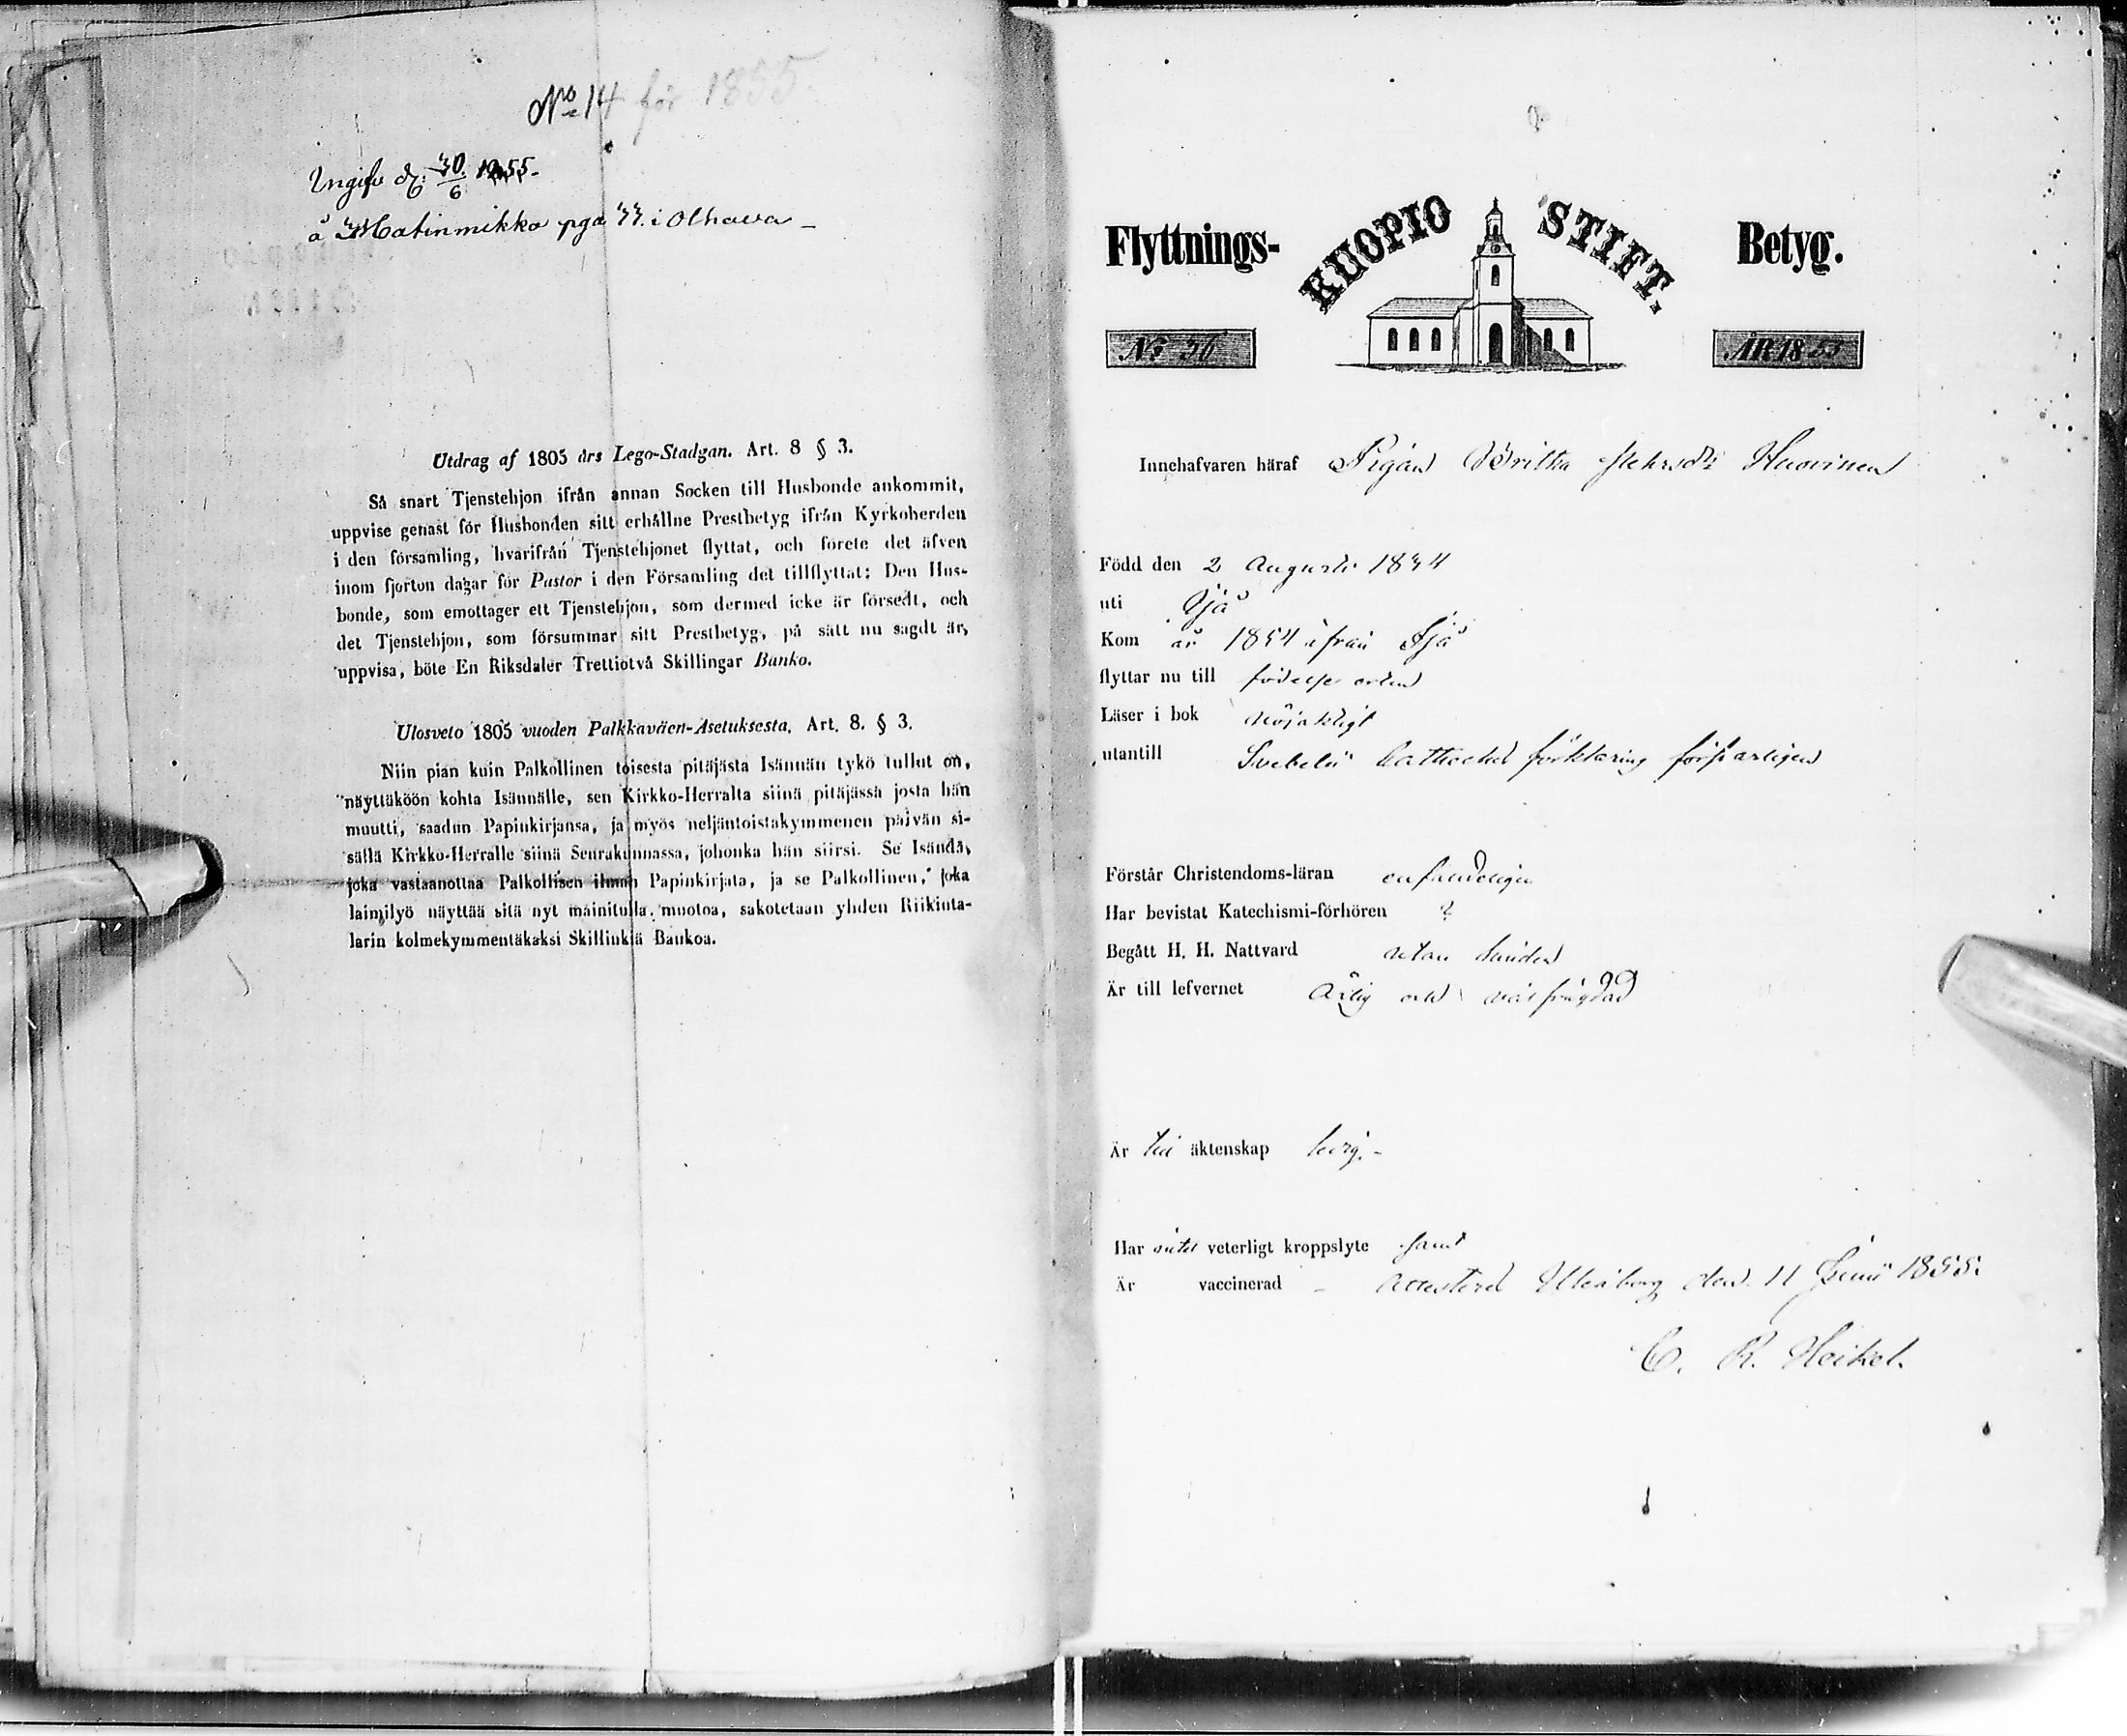 No 14 för 1855.
Ingifv d: 30/6 1855-
å Matinmikko pga 33. i Olhava -
Utdrag af 1805 års Lego-Stadgan. Art. 8 § 3.
Så snart Tjenstehjon ifrån annan Socken till Husbonde ankommit,
uppvise genast för Husbonden sitt erhållne Prestbetyg ifrån Kyrkoherden
i den församling, hvarifrån Tjenstehjonet flyttat, och förete det äfven
inom fjorton dagar för Pastor i den Församling det tillflyttat; Den Hus-
bonde, som emottager ett Tjenstehjon, som dermed icke är försedt, och
det Tjenstehjon, som försummar sitt Prestbetyg, på sätt nu sagdt är,
uppvisa, böte En Riksdaler Trettiotvå Skillingar Banko.
Ulosveto 1805 vuoden Palkkaväen-Asetuksesta, Art. 8. § 3.
Niin pian kuin Palkollinen toisesta pitäjästä Isännän tykö tullut on,
näyttäköön kohta Isännälle, sen Kirkko-Herralta siinä pitäjässä josta hän
muutti, saadun Papinkirjansa, ja myös neljäntoistakymmenen päivän si-
sällä Kirkko-Herralle siinä Seurakunnassa, johonka hän siirsi. Se Isändä,
joka vastaanottaa Palkollisen ilman Papinkirjata, ja se Palkollinen, joka
laimilyö näyttää sitä nyt mainitulla muotoa, sakotetaan yhden Riikinta-
larin kolmekymmentäkaksi Skillinkiä Bankoa.
Flyttnings- KUOPIO STIFT. Betyg.
No 36 ÅR 1855
Innehafvaren häraf Pigan Britha Huovinen
Född den 2 Augusti 1834
uti Ijå
Kom år 1854 ifrån Ijå
flyttar nu till födelse orten
Läser i bok nöjaktigt
utantill Svebelii förklaring försvarligen
Förstår Christendoms-läran enfaldeligen
Har bevistat Katechismi-förhören ?
Begått H. H. Nattvard utan hinder
Är till lefvernet Ärlig och välfrägdad
Är till äktenskap ledig.-
Har intet veterligt kroppslyte samt
Är vaccinerad - Attesterad Uleåborg den 11 Junii 1855.
C. R. Heikel.